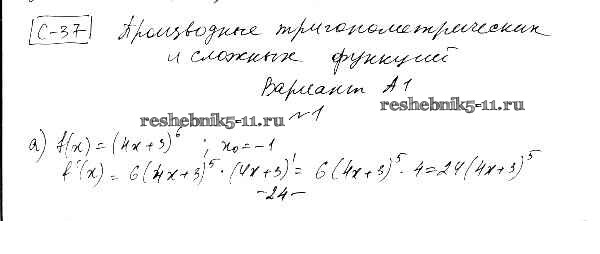 С-37 Производные тригонометрических
и сложных функций
Вариант А1
reshebnik5-11.ru
reshebnik5-11.ru
№1
а) f(x)=(4x+3)⁶ ; x₀=-1
f'(x)=6(4x+3)⁵·(4x+3)'=6(4x+3)⁵·4=24(4x+3)⁵
-24-